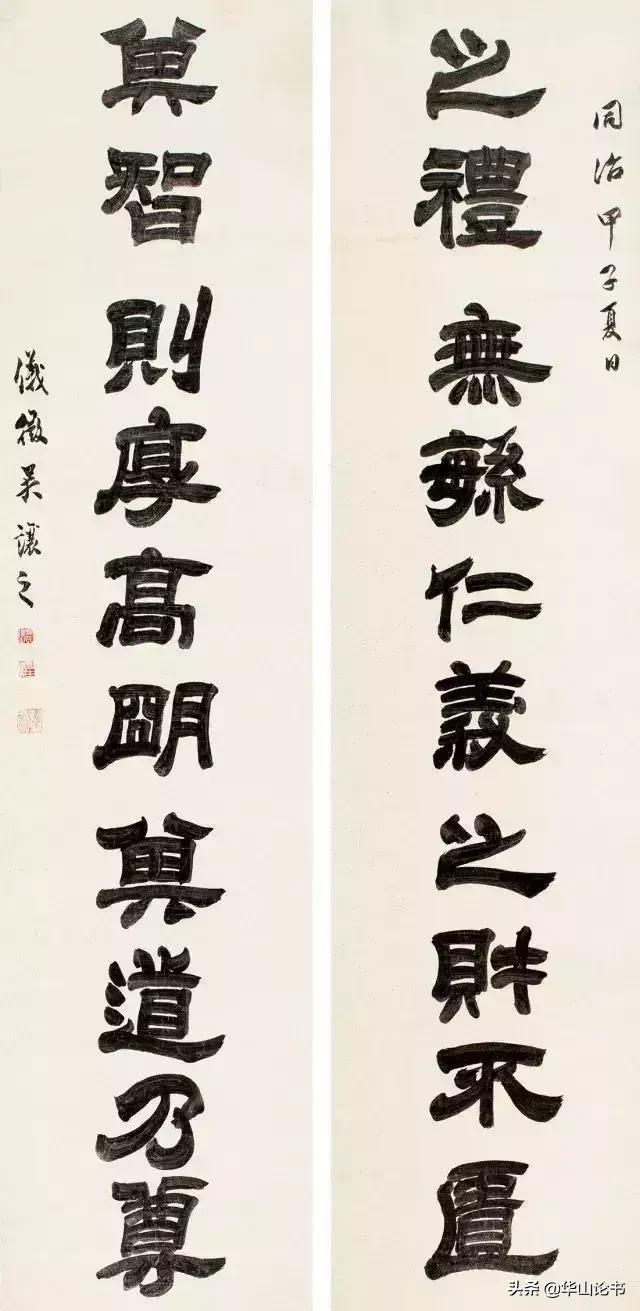 同治甲子夏日
之禮無緐仁義之財不匱
其智則厚高朙其道乃尊
儀徵吳讓之
头条 @华山论书